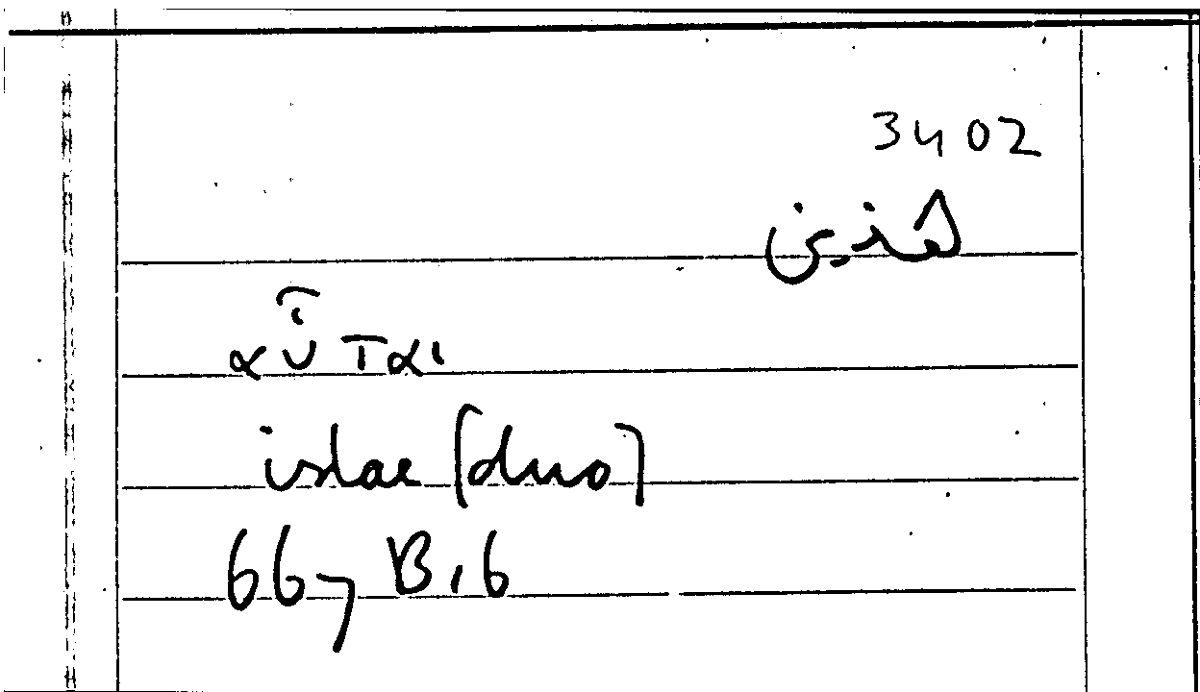 3402
هذين
αὗται
istae [duo]
667 B,6